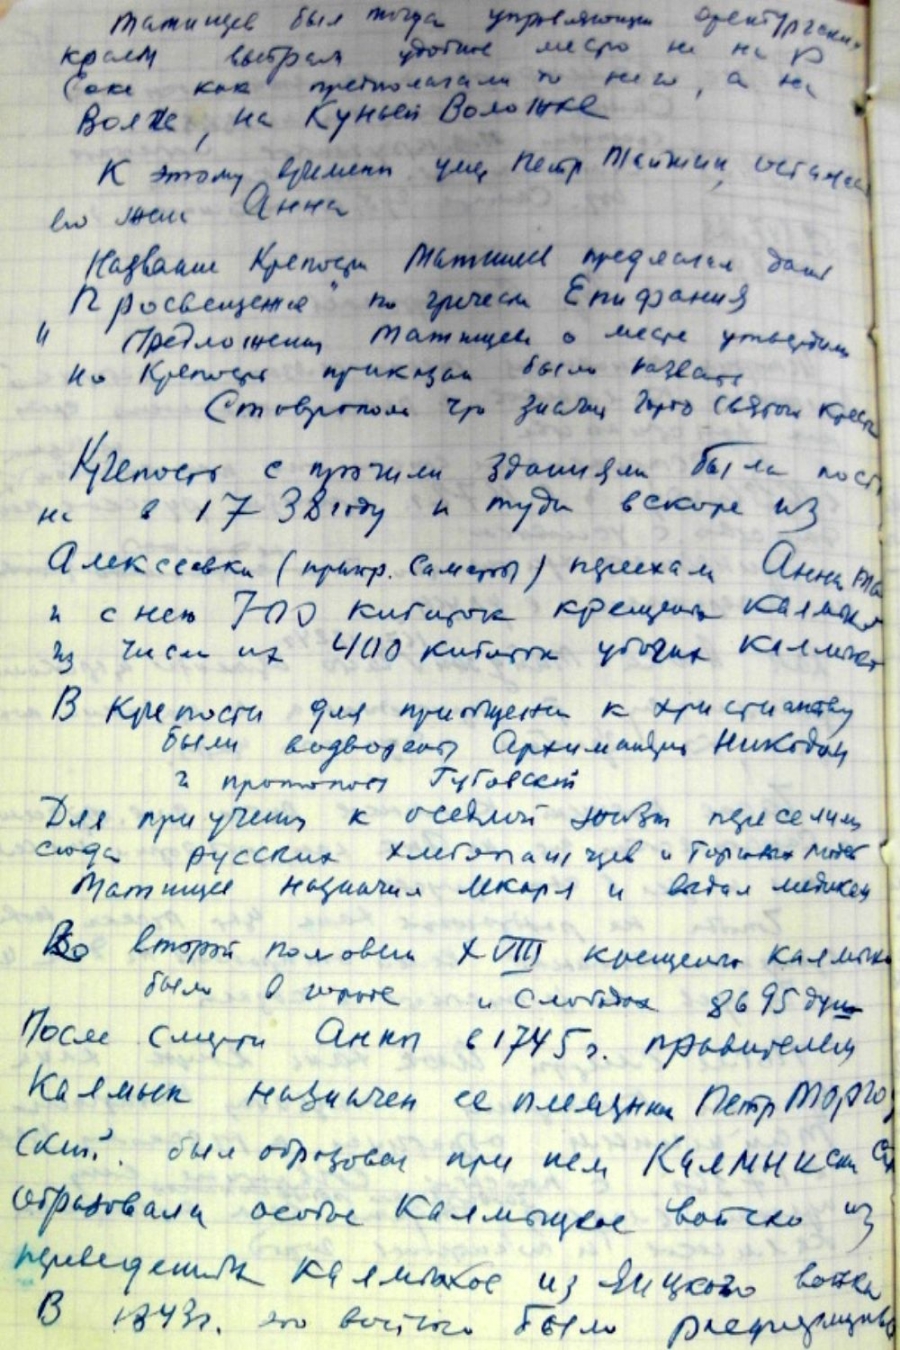 Татищев был тогда управляющим
краем выбрал удобное место не на р
Соке как предполагали до него, а на
Волге, на Куньей Воложке
К этому времени умер Петр Тайшин, осталась
его жена Анна
Название Крепости Татищев предлагал дать
Просвещение" по гречески Епифания
" Предложение Татищева о месте утвердили
но Крепость приказали было назвать
Ставрополем что значит город святого Креста
Крепость с прочими зданиями была пост
на в 1738 году и туда вскоре из
Алексеевки (пригор. Самары) переехала Анна Та
и с нею 700 кибиток крещеных Калмыков
из числа их 400 кибиток убогих Калмыков
В Крепости для приобщения к христианству
были Архимандрит Никодим
и протопоп Губовский
Для приучения к оседлой жизни переселили
сюда русских хлебопашцев и
Татищев назначил лекаря и выдал
Во второй половине XVIII крещеных калмыков
было в городе и слободах 8695 душ
После смерти Анны в 1745 г. правителем
Калмык назначен ее племянник Петр Торго
ский. был образован при нем Калмыкский
образовали особое Калмыцкое войско из
переведенных Калмыков из Яицкого войска
В г. это войско было